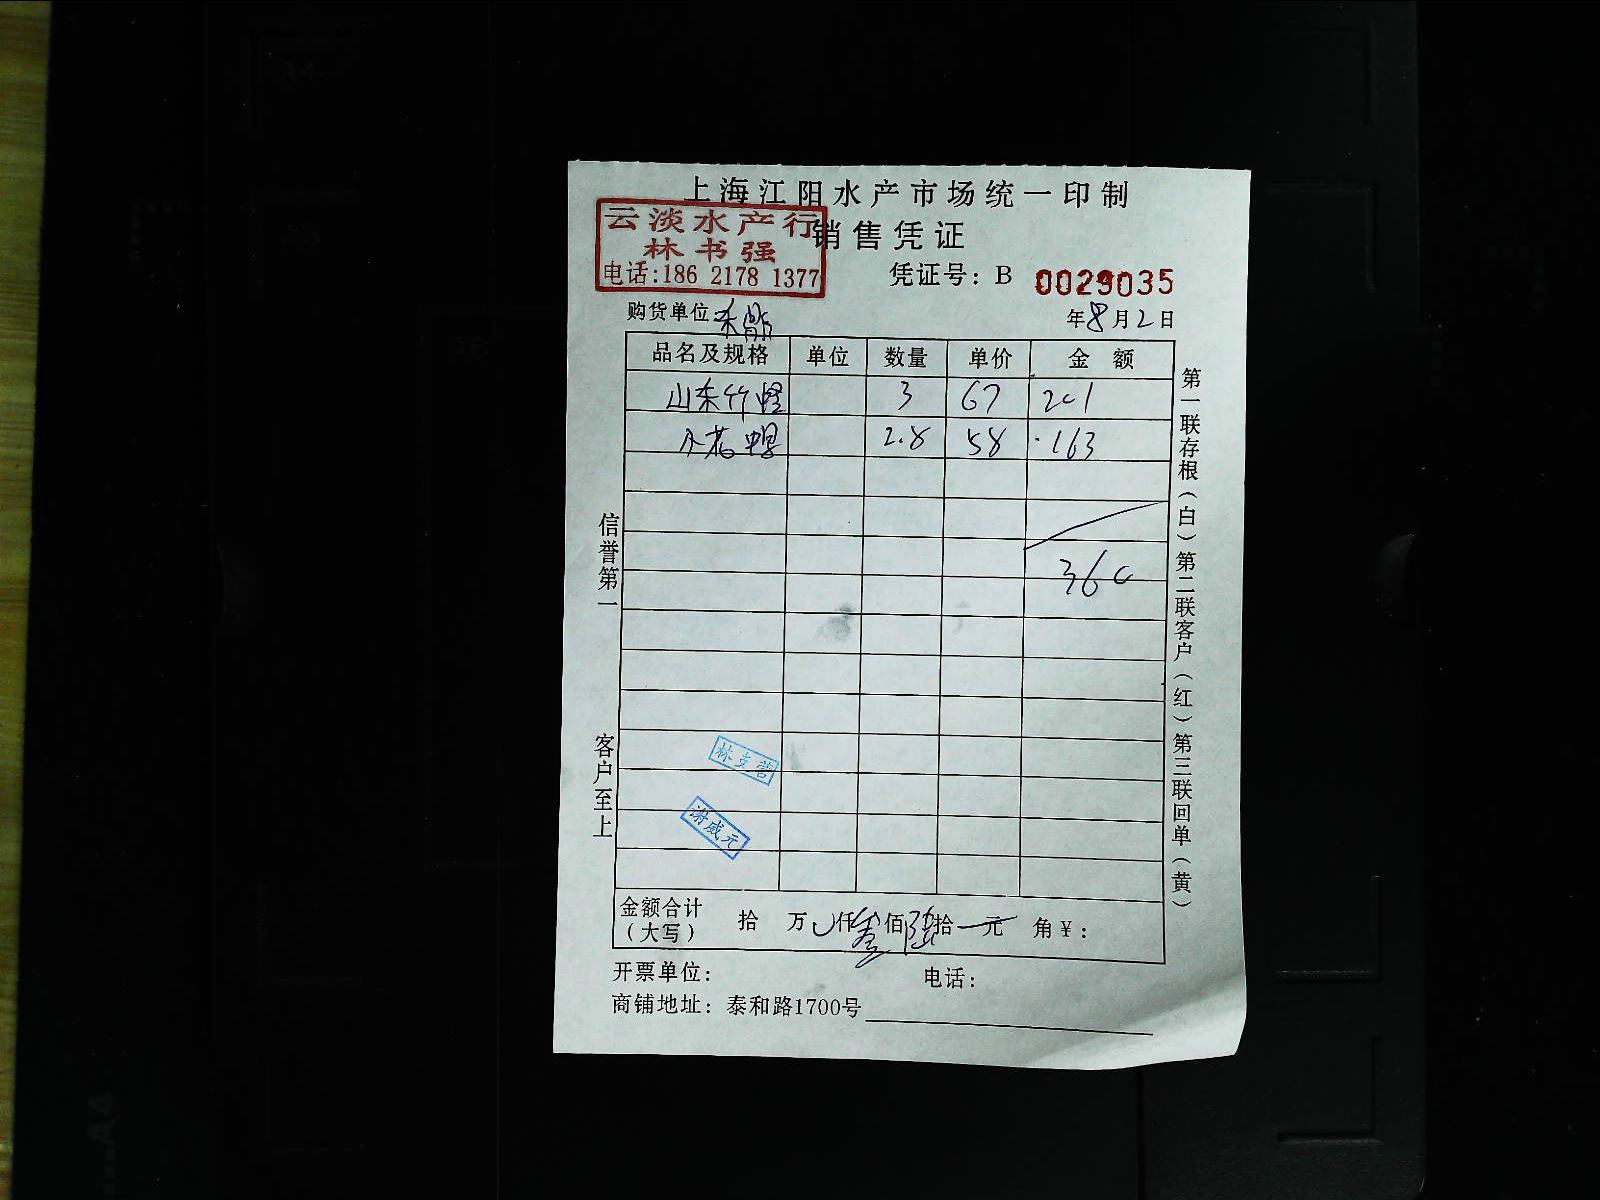 上海江阳水产市场统一印制
云淡水产行
林书强
电话:186 2178 1377
销售凭证
凭证号: B 0029035
购货单位
年8月2日
品名及规格 单位 数量 单价 金额
山东竹蛏 3 67 201
2.8 58 163
360
金额合计(大写) 拾 万 仟叁佰陆拾元 角¥:
开票单位: 电话:
商铺地址: 泰和路1700号
信誉第一
客户至上
第一联存根(白)第二联客户(红)第三联回单(黄)
谢咸元